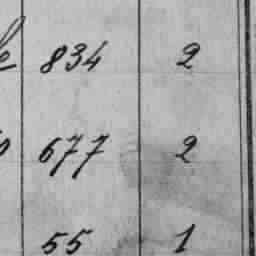 834 2
677 2
55 1